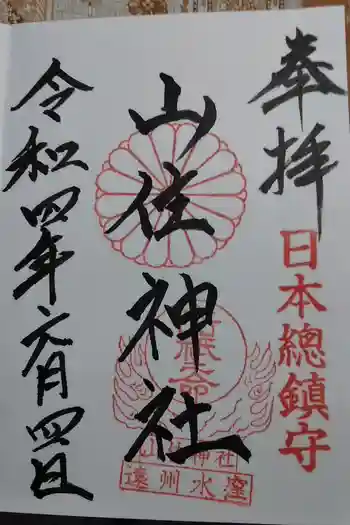 奉拝
日本總鎮守
山住神社
山住神社
遠州水窪
令和四年六月四日